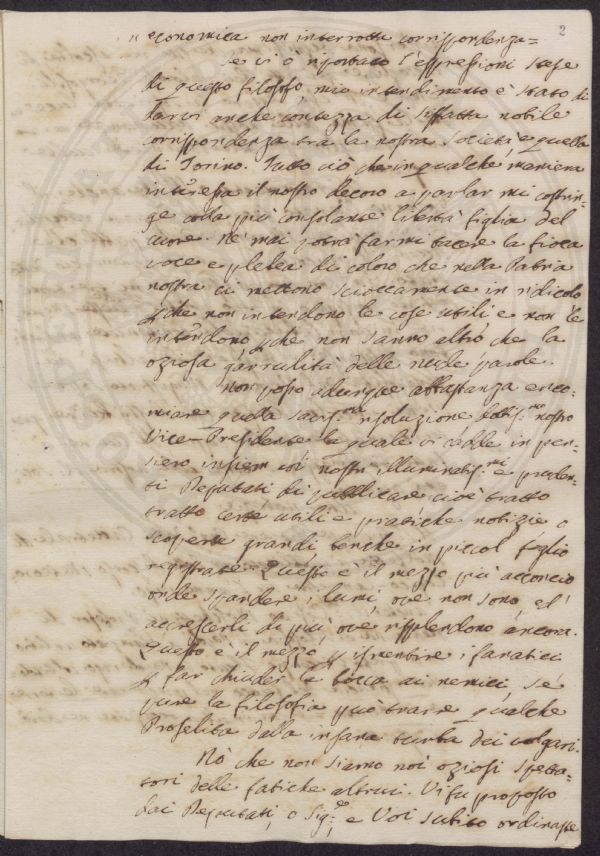 2
economica non interrotta corrispondenza=
Se vi ò riportato l'espressioni stesse
di questo filosofo, mio intendimento è stato di
darvi anche contezza di siffatta nobile
corrispondenza tra la nostra Società e quella
di Torino. Tutto ciò che in qualche maniera
interessa il nostro decoro a parlar mi costrin=
ge colla più consolante libertà figlia del
cuore. Ne mai potrà farmi tacere la fioca
voce e plebea di coloro che nella Patria
nostra ci mettono scioccamente in ridicolo
che non intendono le cose utili e non le
intendono che non sanno altro che la
oziosa garrulità delle nude parole.
Non posso adunque abbastanza enco=
miare quella risoluzione nostro
Vice-Presidente la quale vi cadde in pen=
siero insiem coi nostri illuminatis.mi e pruden=
ti Deputati di pubblicare cioè tratto
tratto certe utili e pratiche notizie o
scoperte grandi, benche in piccol foglio
registrate. Questo è il mezzo più acconcio
onde spandere i lumi, ove non sono, ed
accrescerli di più ove risplendono ancora.
Questo è il mezzo ismentire i fanatici
far chiuder la bocca ai nemici se
pure la filosofia può trarre qualche
Proselita dalla insana turba dei volgari.
Nò che non siamo noi oziosi spetta=
tori delle fatiche altrui. Vi fu proposto
dai Deputati, o Sig.ri e Voi subito ordinaste